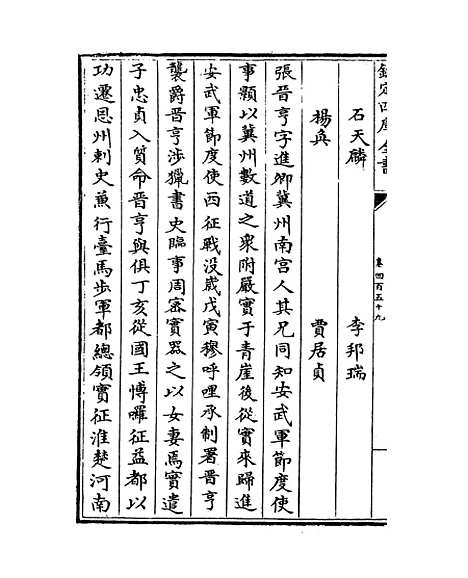 欽定四庫全書
卷四百五十九
石天麟 李邦瑞
楊奐 賈居貞
張晉亨字進卿冀州南宫人其兄同知安武軍節度使
事顥以冀州數道之衆附嚴實于青崖後從實來歸進
安武軍節度使西征戰没嵗戊寅穆呼哩承制署晉亨
襲爵晉亨涉獵書史臨事周審實器之以女妻焉實遣
子忠貞入質命晉亨與俱丁亥從國王博囉征益都以
功遷恩州刺史兼行臺馬步軍都總領實征淮楚河南